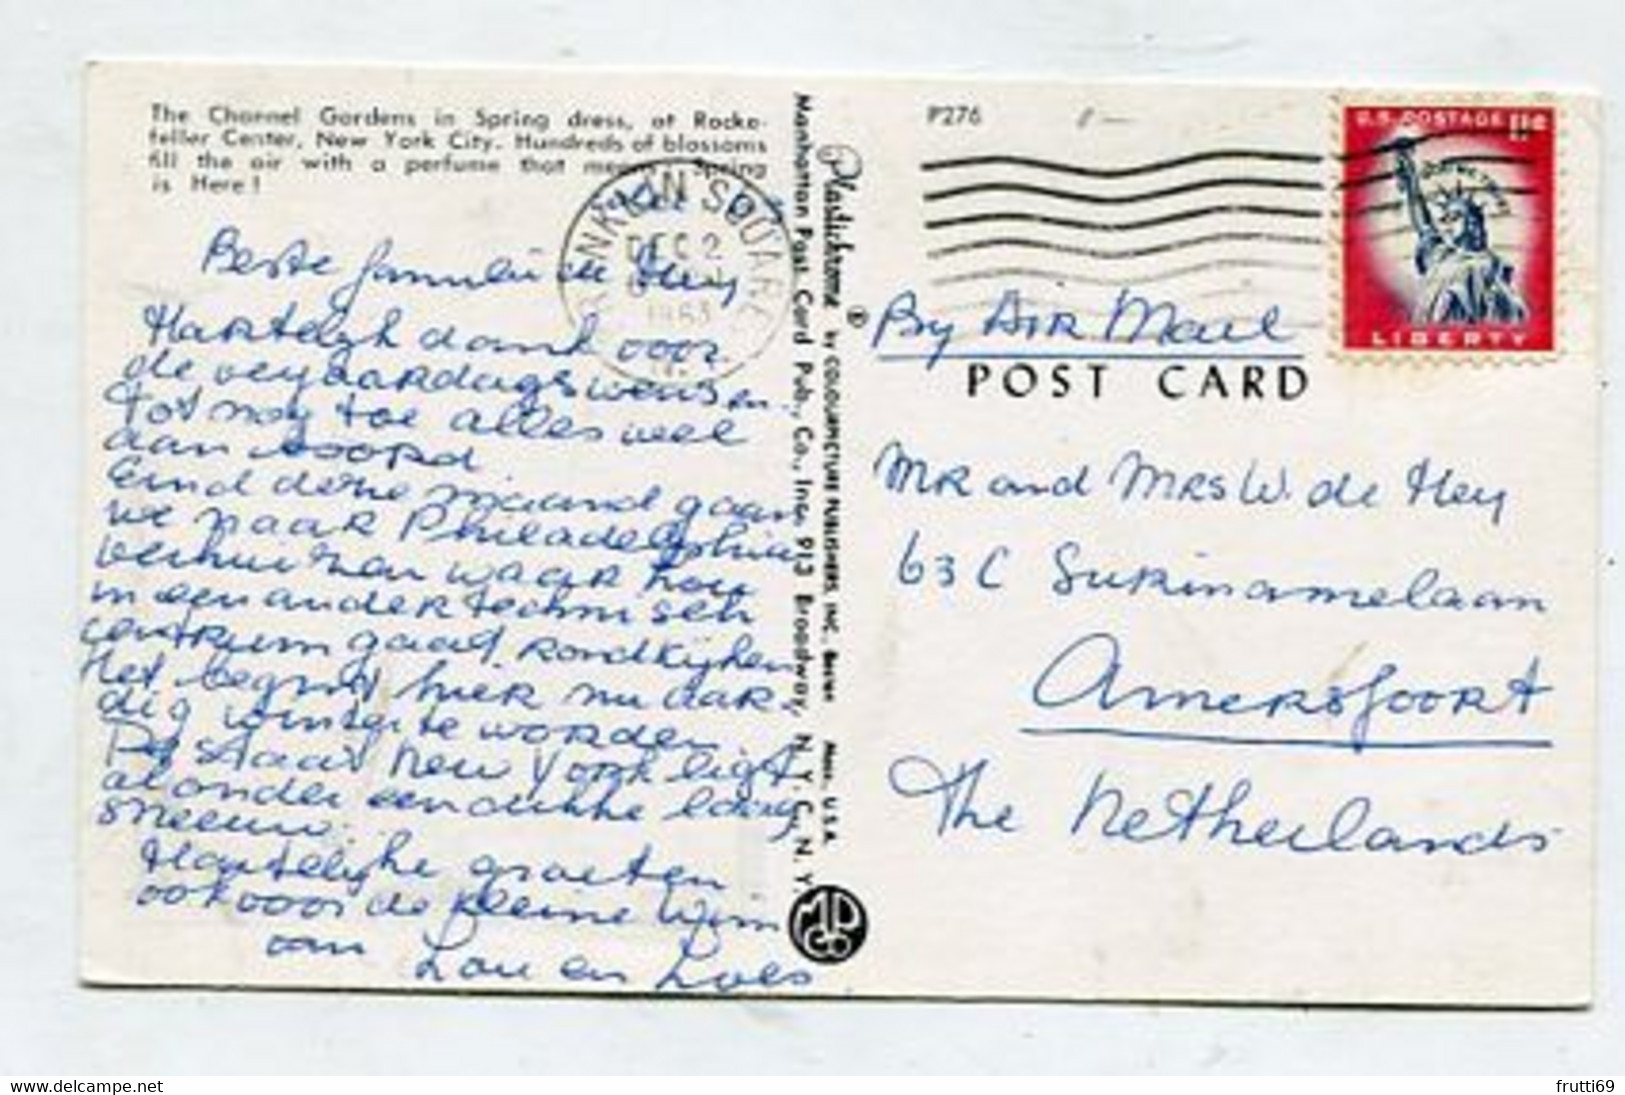 The Channel Gardens in Spring dress, at Rocke-
feller Center, New York City. Hundreds of blossoms
fill the air with a perfume that Spring
is Here!
Beste familie de Hey
Hartelijk dank voor
de verjaardagswensen.
Tot nog toe alles wel
aan boord.
Eind deze maand gaan
we naar Philadelphia
verhuizen waar Lou
in een ander technisch
centrum gaat rondkijken
Het begint hier nu aar-
dig winters te worden
De staat New York ligt
al onder een dikke laag
sneeuw.
Hartelijke groeten
ook voor de kleine Wim
van Lou en Loes
Plastichrome ® by COLOURPICTURE PUBLISHERS, INC., Boston Mass., U.S.A.
Manhattan Post Card Pub., Co., Inc. 913 Broadway, N.Y.C. N.Y.
MD
CO
P276
SQUARE
DEC 2
1963
U.S. POSTAGE 11¢
IN GOD WE TRUST
LIBERTY
By Air Mail
POST CARD
Mr and Mrs W. de Hey
63 C Surinamelaan
Amersfoort
The Netherlands
frutti69